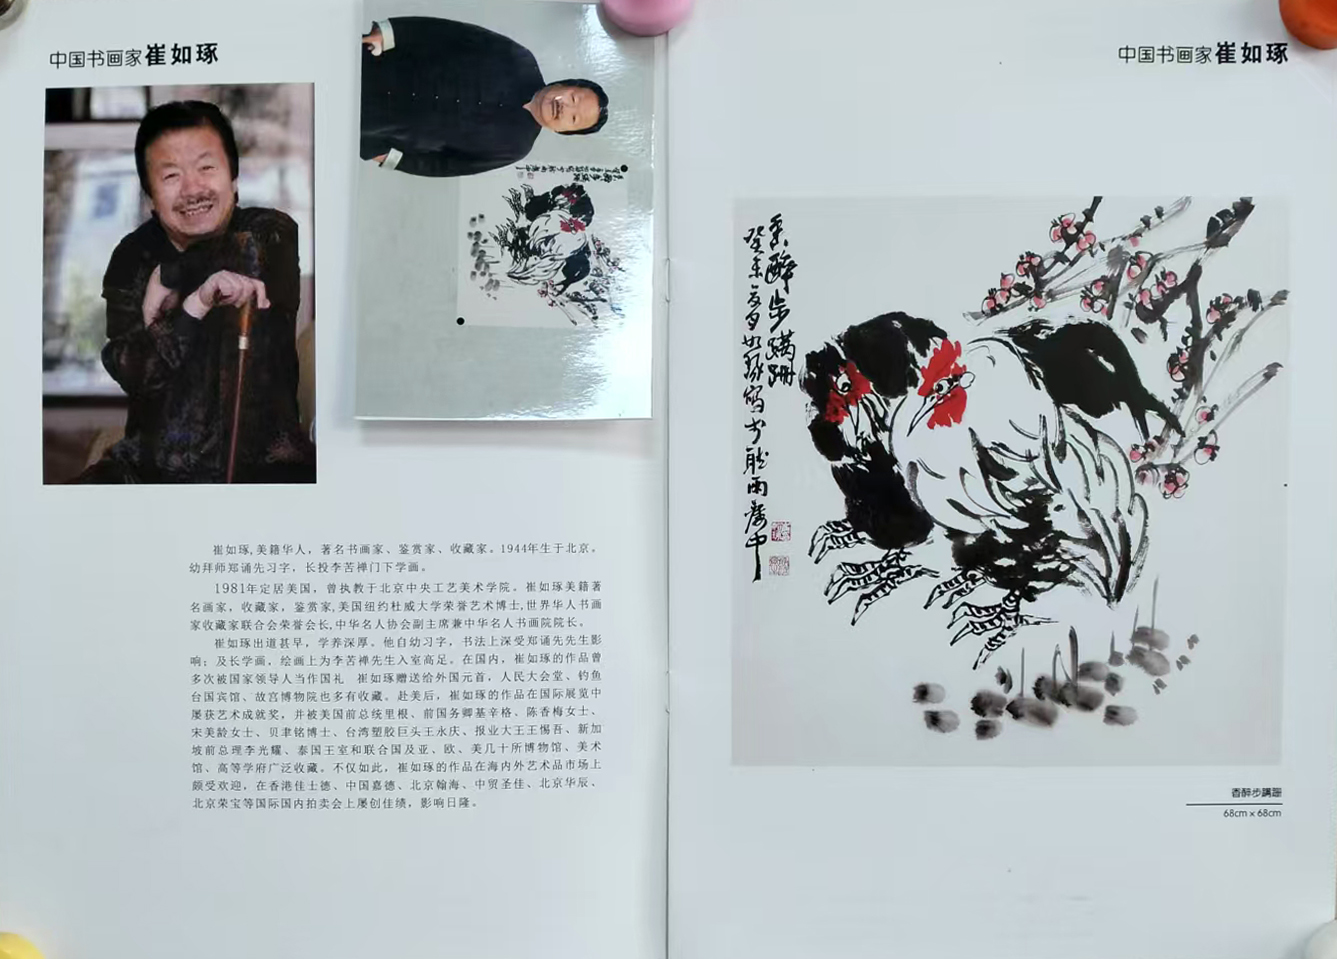 中国书画家崔如琢
崔如琢,美籍华人，著名书画家、鉴赏家、收藏家。1944年生于北京。
幼拜师郑诵先习字，长投李苦禅门下学画。
1981年定居美国，曾执教于北京中央工艺美术学院。崔如琢美籍著
名画家，收藏家，鉴赏家,美国纽约杜威大学荣誉艺术博士,世界华人书画
家收藏家联合会荣誉会长,中华名人协会副主席兼中华名人书画院院长。
崔如琢出道甚早，学养深厚。他自幼习字，书法上深受郑诵先先生影
响；及长学画，绘画上为李苦禅先生入室高足。在国内，崔如琢的作品曾
多次被国家领导人当作国礼 崔如琢赠送给外国元首，人民大会堂、钓鱼
台国宾馆、故宫博物院也多有收藏。赴美后，崔如琢的作品在国际展览中
屡获艺术成就奖，并被美国前总统里根、前国务卿基辛格、陈香梅女士、
宋美龄女士、贝聿铭博士、台湾塑胶巨头王永庆、报业大王王惕吾、新加
坡前总理李光耀、泰国王室和联合国及亚、欧、美几十所博物馆、美术
馆、高等学府广泛收藏。不仅如此，崔如琢的作品在海内外艺术品市场上
颇受欢迎，在香港佳士德、中国嘉德、北京翰海、中贸圣佳、北京华辰、
北京荣宝等国际国内拍卖会上屡创佳绩，影响日隆。
中国书画家崔如琢
香醉步蹒跚
癸未 如琢写于听雨楼中
香醉步蹒跚
68cm x 68cm